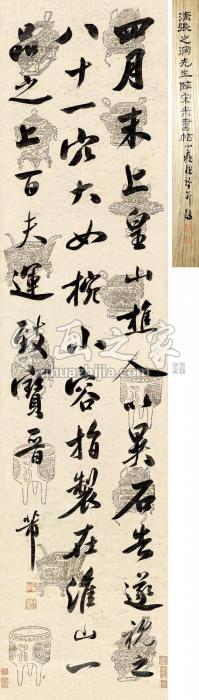 清張之洞先生臨宋米書帖
四月末上皇山樵人以異石告遂視之
八十一穴大如椀小容指製在淮山一
品之上百夫運致寶晉 芾
字画之家
zihuazhijia.com